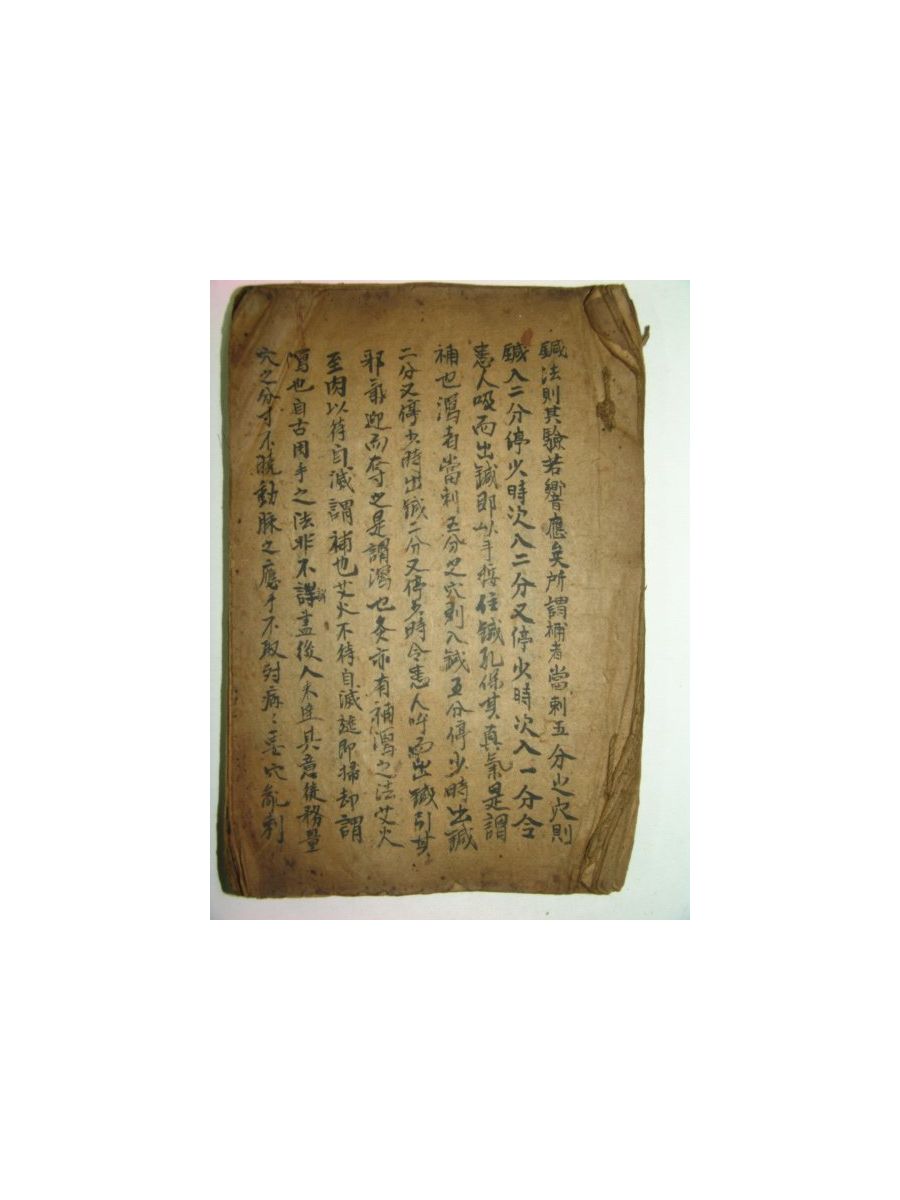 鍼法則其驗若響應矣所謂補者當刺五分之穴則
鍼入二分停少時次入二分又停少時次入一分令
患人吸而出鍼即以手按住鍼孔保其真氣是謂
補也瀉者當刺五分之穴則入鍼五分停少時出鍼
二分又停少時出鍼二分又停少時令患人呼而出鍼引其
邪氣迎而奪之是謂瀉也灸亦有補瀉之法艾火
至肉以待自滅謂補也艾火不待自滅遽即掃却謂
瀉也自古用手之法非不詳盡後人未達其意徒務量
穴之分寸不曉動脉之應手不取對病之穴亂刺